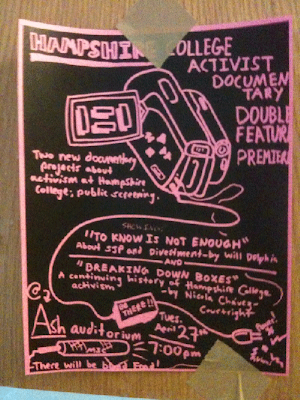 HAMPSHIRE COLLEGE
ACTIVIST
DOCUMEN
TARY
DOUBLE
FEATURE
PREMIER
Two new documentary
projects about
activism at Hampshire
College, public screening.
"TO KNOW IS NOT ENOUGH"
About SJP and Divestment-by Will Delphia
AND
"BREAKING DOWN BOXES"
A continuing history of Hampshire College
activism
-by Nicola Chávez
Courtright
@
Ash auditorium
BE THERE!!
Tues.
April 27th
7:00pm
-There will be Food!